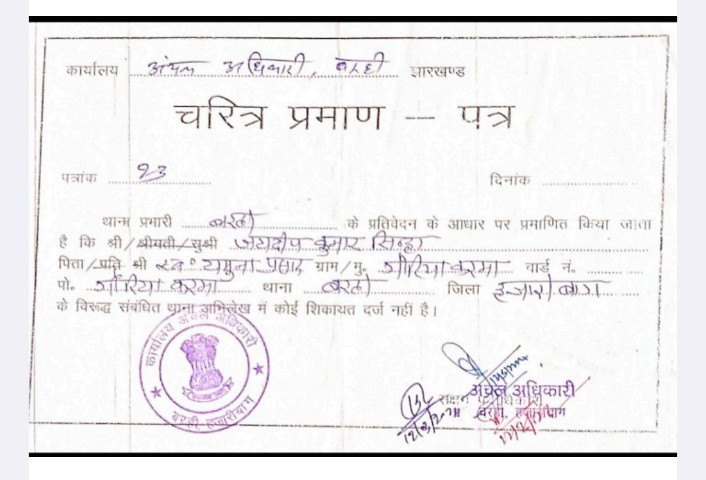 कार्यालय अंचल अधिकारी, बरही झारखण्ड
चरित्र प्रमाण – पत्र
पत्रांक 23 दिनांक
थाना प्रभारी बरही के प्रतिवेदन के आधार पर प्रमाणित किया जाता
है कि श्री/श्रीमती/सुश्री जयदीप कुमार सिन्हा
पिता/पति श्री स्व० यमुना प्रसाद ग्राम/मु. गौरिया करमा वार्ड नं.
पो. गौरिया करमा थाना बरही जिला हजारीबाग
के विरूद्ध संबंधित थाना अभिलेख में कोई शिकायत दर्ज नहीं है।
कार्यालय अंचल अधिकारी
बरही, हजारीबाग
अंचल अधिकारी
बरही, हजारीबाग